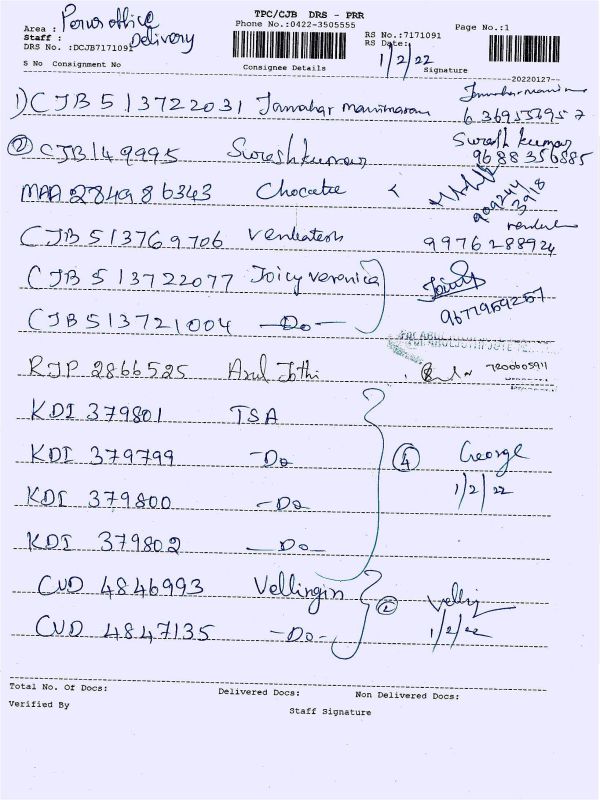 TPC/CJB DRS - PRR
Area : Perur office Delivery
Phone No.:0422-3505555
Page No.:1
Staff :
RS No.:7171091
DRS No. :DCJB7171091
RS Date: 1/2/22
S No Consignment No Consignee Details Signature
20220127
1) CJB 513722031 Jawahar manimaran
6369556957
2) CJB149995 Sureshkumar Suresh kumar
9688356885
MAA 284986343
CJB 513769706 Venkatesh
9976288924
CJB 513722077 Joicy veronica
9677959257
CJB 513721004 -Do-
RJP 2866525 Arul Jothi 7200605911
KDI 379801 TSA
KDI 379799 -Do 4 George
1/2/22
KDI 379800 -Do
KDI 379802 -Do-
CUD 4846993 Vellingiri 2
CUD 4847135 -Do- 1/2/22
Total No. Of Docs: Delivered Docs: Non Delivered Docs:
Verified By
Staff Signature